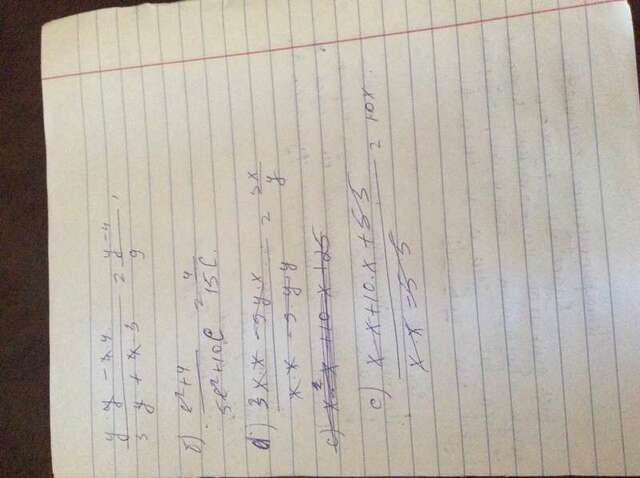 y y - 4 4 / 3 y + 4 3 = y - 4 / 9 ,
б) c²+4 / 5c²+10c = 4 / 15c.
d) 3xx - 9yx / xx - 9yy = 3x / y
c) x²x + 10 x + 25
c) x x + 10.x + 55 / x x - 55 = 10x.